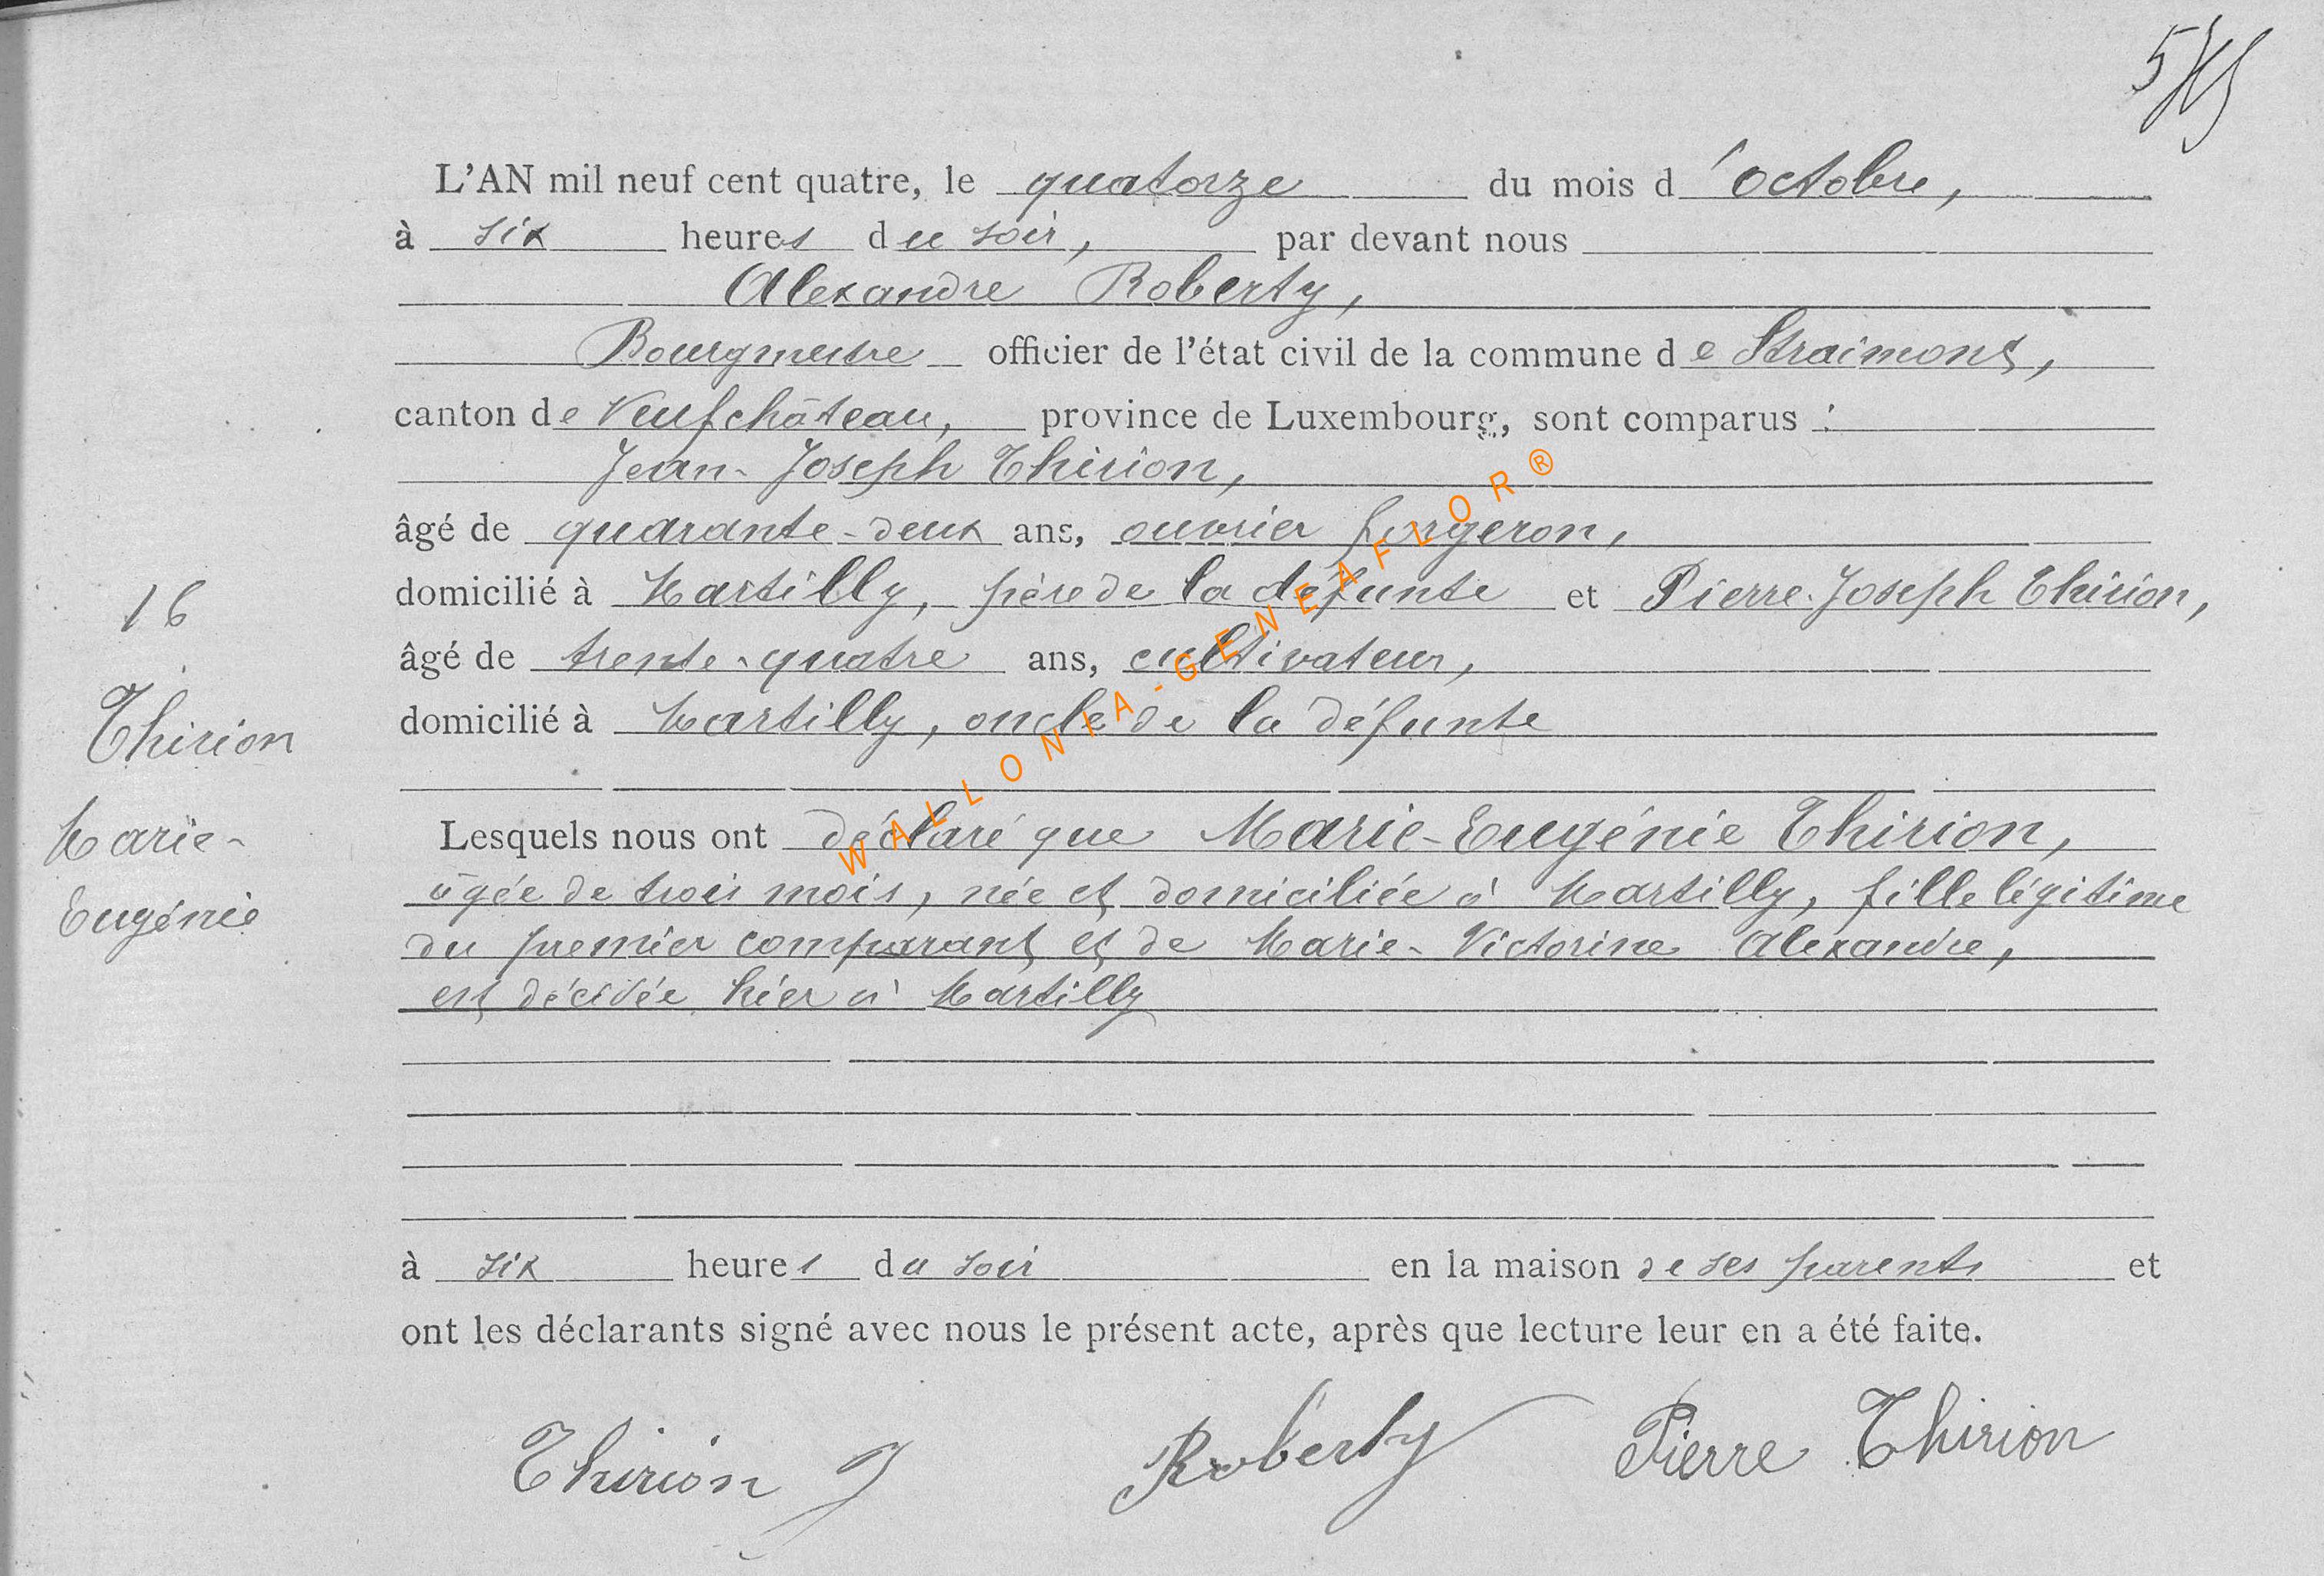 5
L'AN mil neuf cent quatre, le quatorze du mois d'octobre,
à six heures du soir, par devant nous
Alexandre Roberty,
Bourgmestre officier de l'état civil de la commune de Straimont,
canton de Neufchâteau, province de Luxembourg, sont comparus :
Jean-Joseph Thirion,
âgé de quarante-deux ans, ouvrier forgeron,
domicilié à Martilly, père de la défunte et Pierre-Joseph Thirion,
âgé de trente-quatre ans, cultivateur,
domicilié à Martilly, oncle de la défunte
16
Thirion
Marie-
Eugénie
Lesquels nous ont déclaré que Marie-Eugénie Thirion,
âgée de trois mois, née et domiciliée à Martilly, fille légitime
du premier comparant et de Marie-Victorine Alexandre,
est décédée hier à Martilly
à six heures du soir en la maison de ses parents et
ont les déclarants signé avec nous le présent acte, après que lecture leur en a été faite.
Thirion J Roberty Pierre Thirion
WALLONIA-GENEAFLOR®